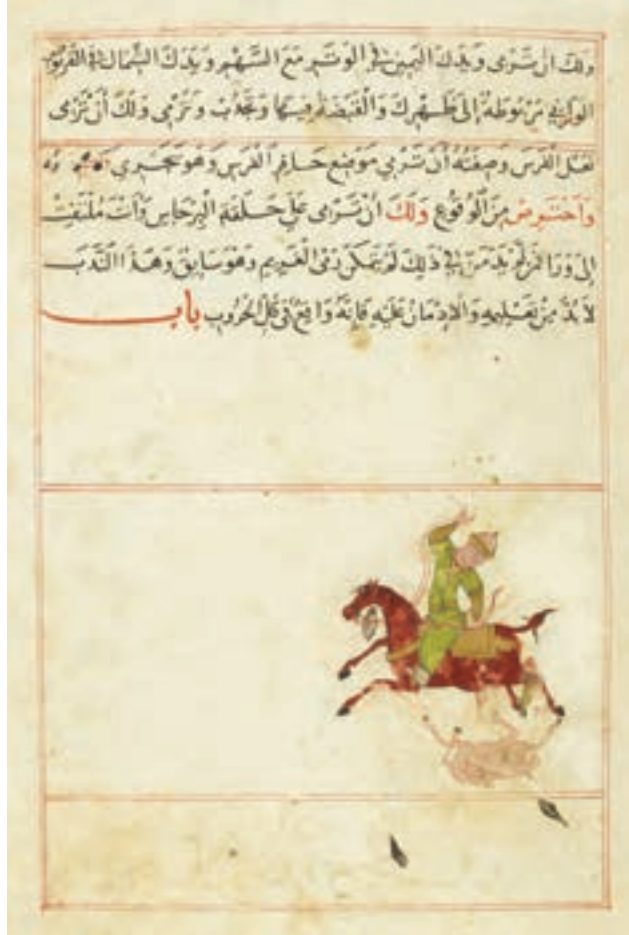 ولك ان ترمى ويدك اليمين في الوتر مع السهم ويدك الشمال في القربوس
مربوطة إلى ظهرك والقبضة فيها وتجذب وترمى ولك أن ترمى
نعل الفرس وصفته أن ترمي موضع حافر الفرس وهو يجري
واحترص من الوقوع ولك ان ترمى على حلقة البرجاس وأنت ملتفت
إلى ورا في ذلك لم يتمكن رمى الغريم وهو سابق وهذا الندب
لا بد من تعليمه والادمان عليه فإنه في كل الحروب باب